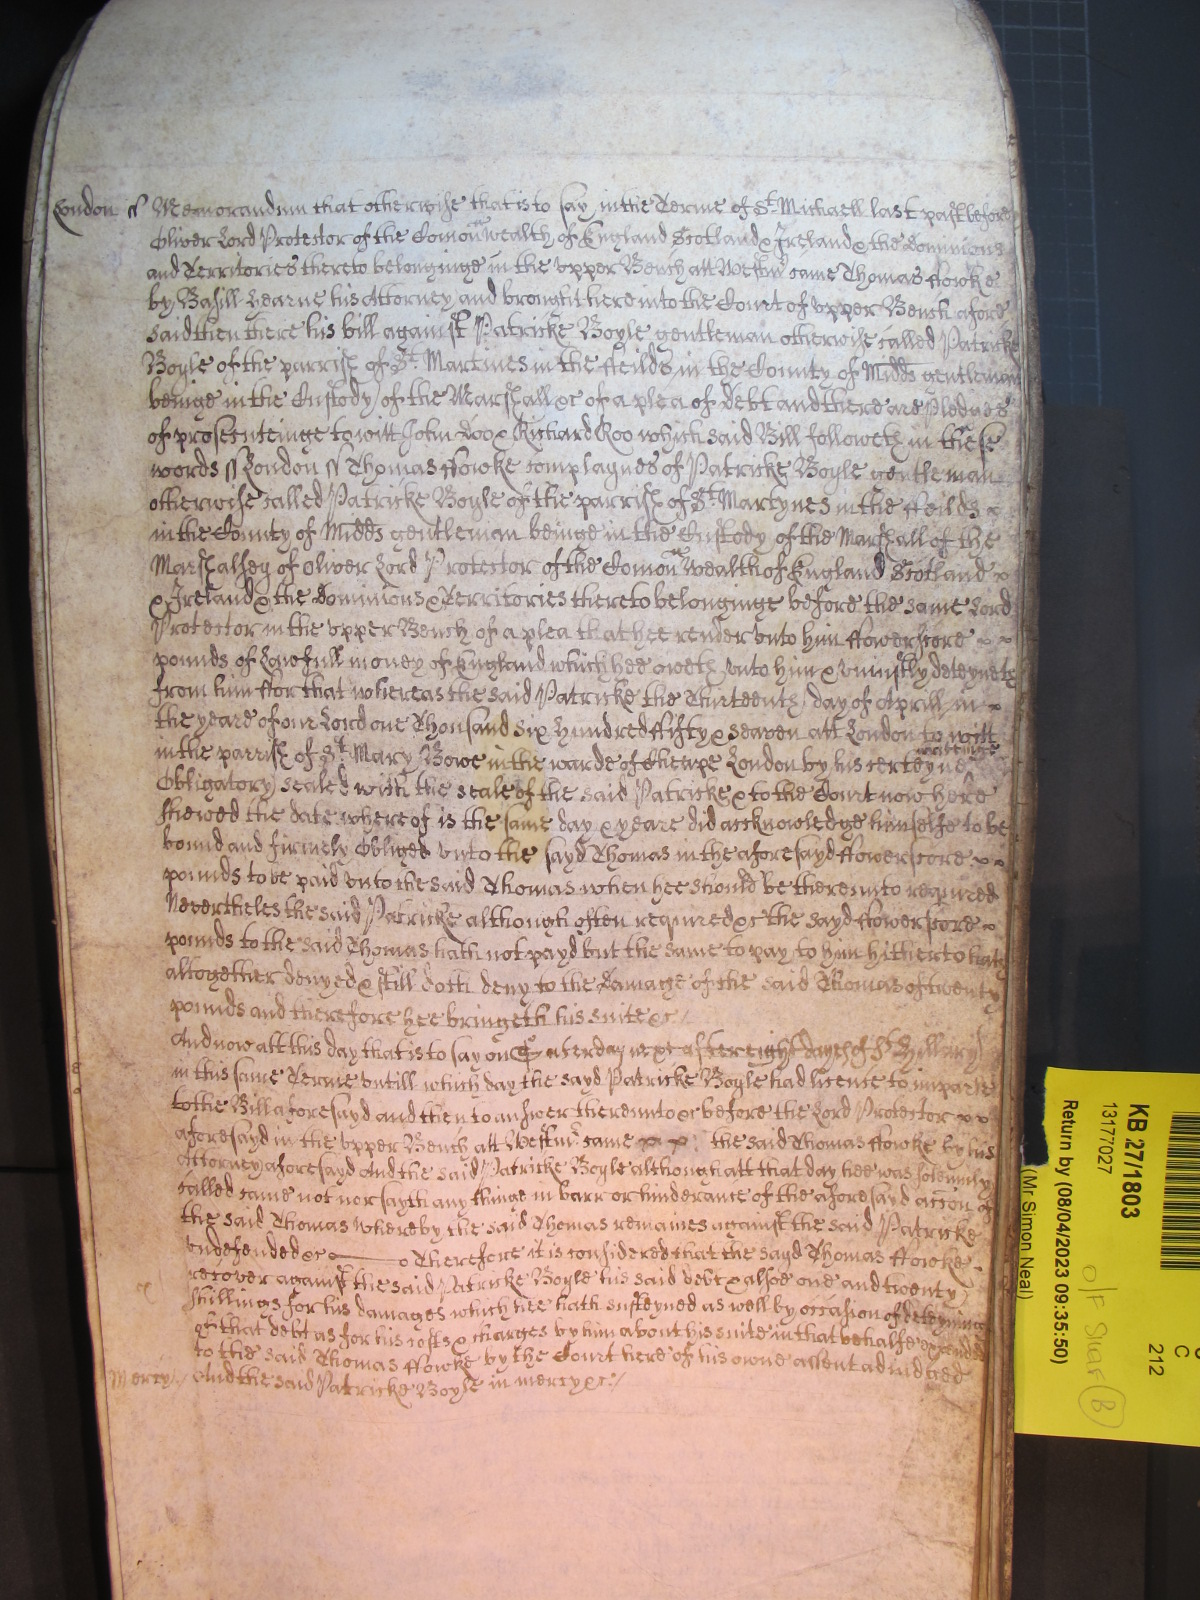 London ss Memorandum that otherwise that is to say in the Terme of St. Michaell last past before
Oliver Lord Protector of the Comonwealth of England Scotland & Ireland & the dominions
and Territories thereto belonginge in the upper Bench att Westmr came Thomas ffowke
by Basill Hearne his Attorney and brought here into the Court of upper Bench afore
said then there his bill against Patricke Boyle gentleman otherwise called Patricke
Boyle of the parrish of St. Martines in the ffeilds in the County of Midds gentleman
beinge in the Custody of the Marshall &c of a plea of debt and there are Pledges
of prosecuteinge to witt John doo & Richard Roo which said Bill followeth in these
words ss London ss Thomas ffowke complaynes of Patricke Boyle gentleman
otherwise called Patricke Boyle of the parrish of St. Martynes in the ffeilds
in the County of Midds gentleman beinge in the Custody of the Marshall of the
Marshalsey of Oliver Lord Protector of the Comonwealth of England Scotland
& Ireland & the dominions & Territories thereto belonginge before the same Lord
Protector in the upper Bench of a plea that hee render unto him ffowerscore
pounds of Lawfull money of England which hee oweth unto him & uniustly deteyneth
from him ffor that whereas the said Patricke the Thirteenth day of Aprill in
the yeare of our Lord one Thousand six hundred ffifty & seaven att London to witt
in the parrish of St. Mary Bowe in the warde of Cheape London by his certeyne writeinge
Obligatory sealed with the seale of the said Patricke & to the Court now here
shewed the date whereof is the same day & yeare did acknowledge himselfe to be
bound and firmely Obliged unto the sayd Thomas in the aforesayd ffowerscore
pounds to be paid unto the said Thomas when hee should be thereunto required
Nevertheles the said Patricke although often required &c the sayd ffowerscore
pounds to the said Thomas hath not payd but the same to pay to him hitherto hath
altogether denyed & still doth deny to the damage of the said Thomas of twenty
pounds and therefore hee bringeth his suite &c
And now att this day that is to say on Saterday next after eight dayes of St. Hillary
in this same Terme untill which day the sayd Patricke Boyle had licence to imparle
to the Bill aforesayd and then to answer thereunto &c before the Lord Protector
aforesayd in the upper Bench att Westmr came the said Thomas ffowke by his
Attorney aforesayd And the said Patricke Boyle although att that day hee was solemnly
called came not nor sayth any thinge in barr or hinderance of the aforesayd accon of
the said Thomas whereby the said Thomas remaines against the said Patricke
undefended &c Therefore it is considered that the sayd Thomas ffowke
recover against the said Patricke Boyle his said debt & alsoe one and twenty
shillings for his damages which hee hath susteyned as well by occasion of deteyninge
of that debt as for his costs & charges by him about his suite in that behalfe expended
to the said Thomas ffowke by the Court here of his owne assent adiudged
Mercy And the said Patricke Boyle in mercy &c
KB 27/1803
13177027
Return by (08/04/2023 09:35:50)
(Mr Simon Neal)
C
212
O/F Shelf B